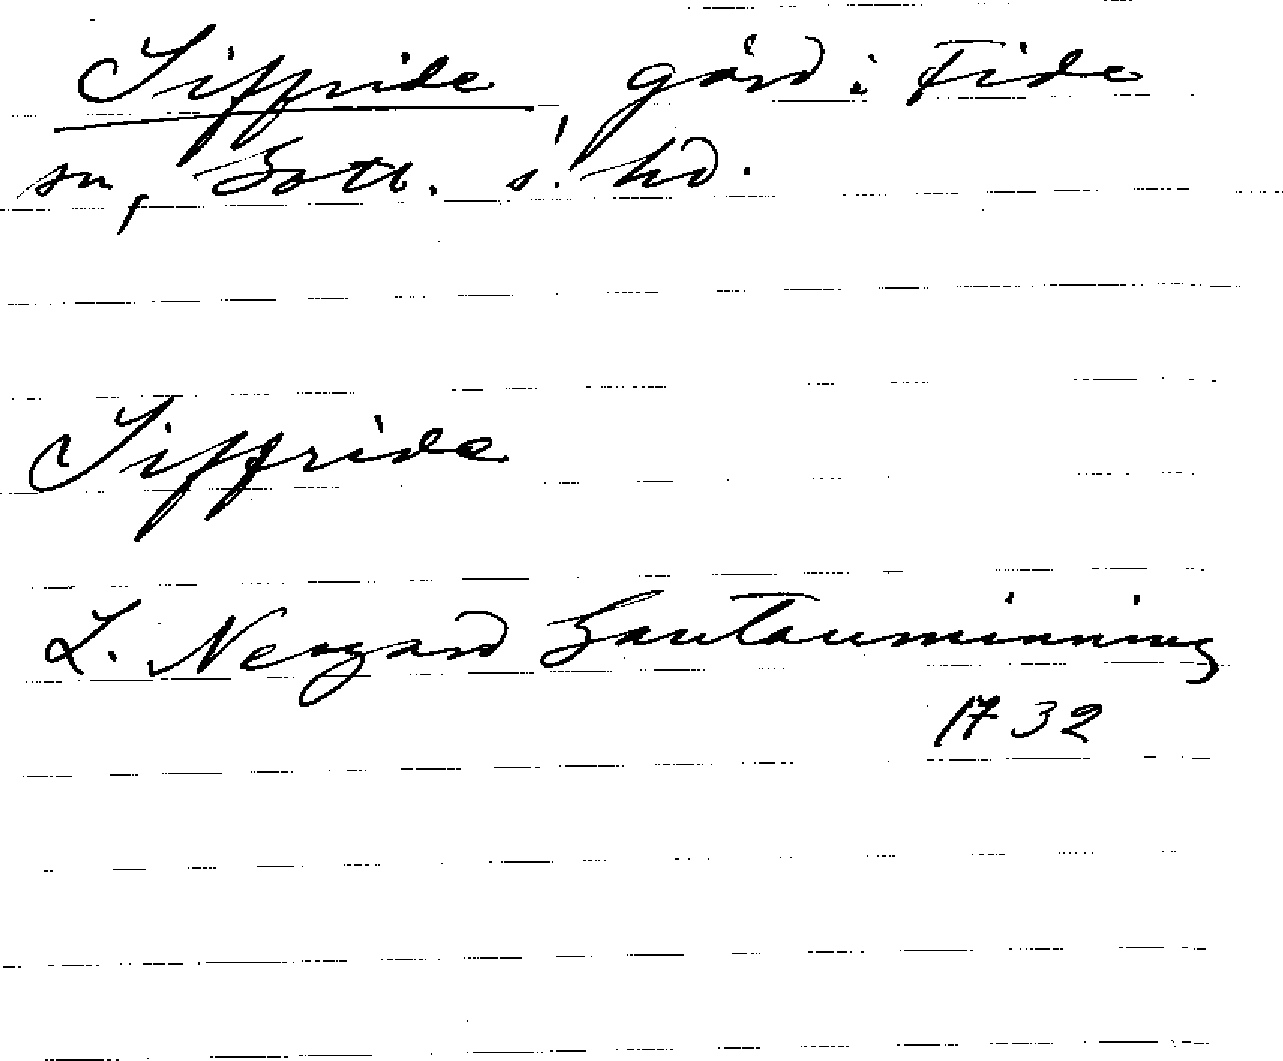 Siffride, gård i Fide
sn, Gotl. s. hd.
Siffride
L. Neogard Gautauminning
1732